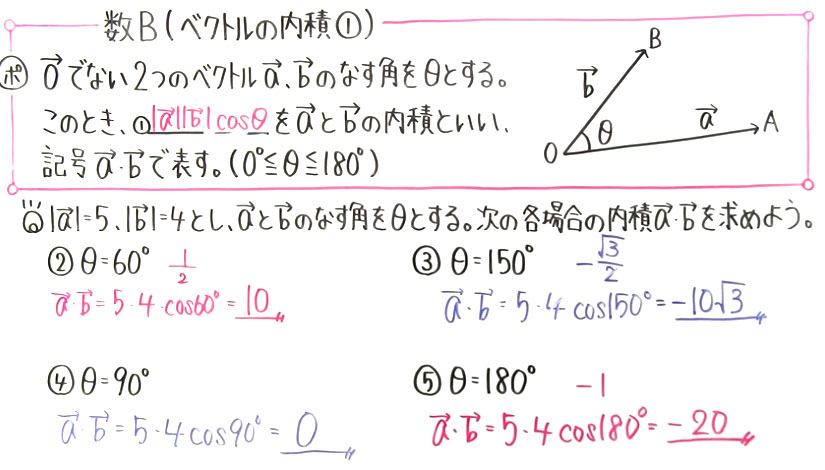 数B(ベクトルの内積①)
ポ 0⃗でない2つのベクトルa⃗、b⃗のなす角をθとする。
このとき、①|a⃗||b⃗|cosθをa⃗とb⃗の内積といい、
記号a⃗・b⃗で表す。(0°≦θ≦180°)
B
b⃗
θ
a⃗
A
O
|a⃗|=5、|b⃗|=4とし、a⃗とb⃗のなす角をθとする。次の各場合の内積a⃗・b⃗を求めよう。
②θ=60° 1/2
a⃗・b⃗=5・4・cos60°=10
③θ=150° -√3/2
a⃗・b⃗=5・4cos150°=-10√3
④θ=90°
a⃗・b⃗=5・4cos90°=0
⑤θ=180° -1
a⃗・b⃗=5・4cos180°=-20